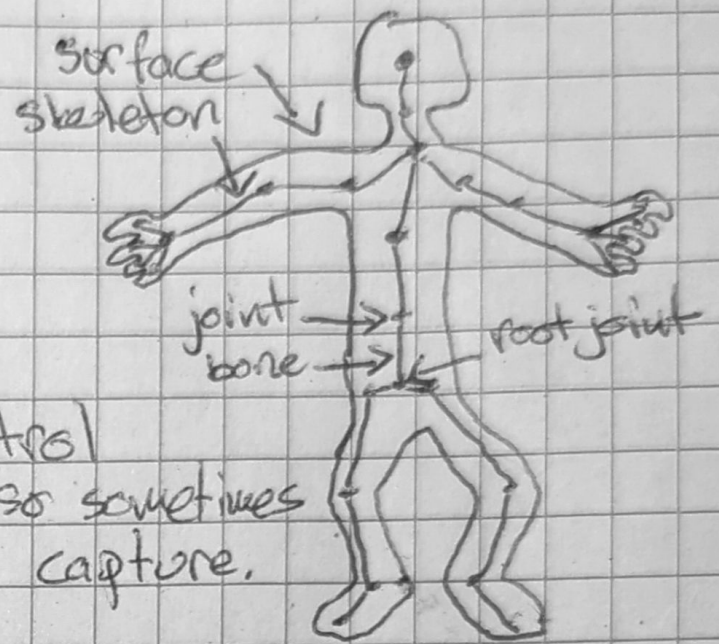 surface
skeleton
joint
root joint
bone
trol
so sometimes
capture.